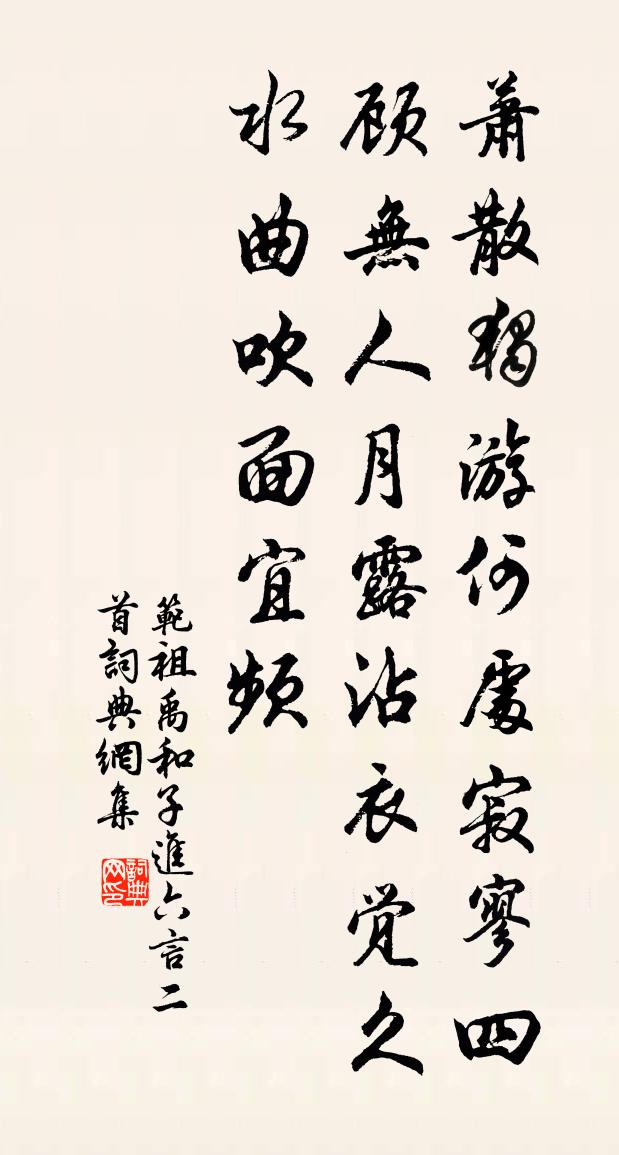 蕭散獨游何處寂寥四
顧無人月露沾衣覺久
水曲吹面宜頻
範祖禹和子進六言二
首詞典網集
詞典网印